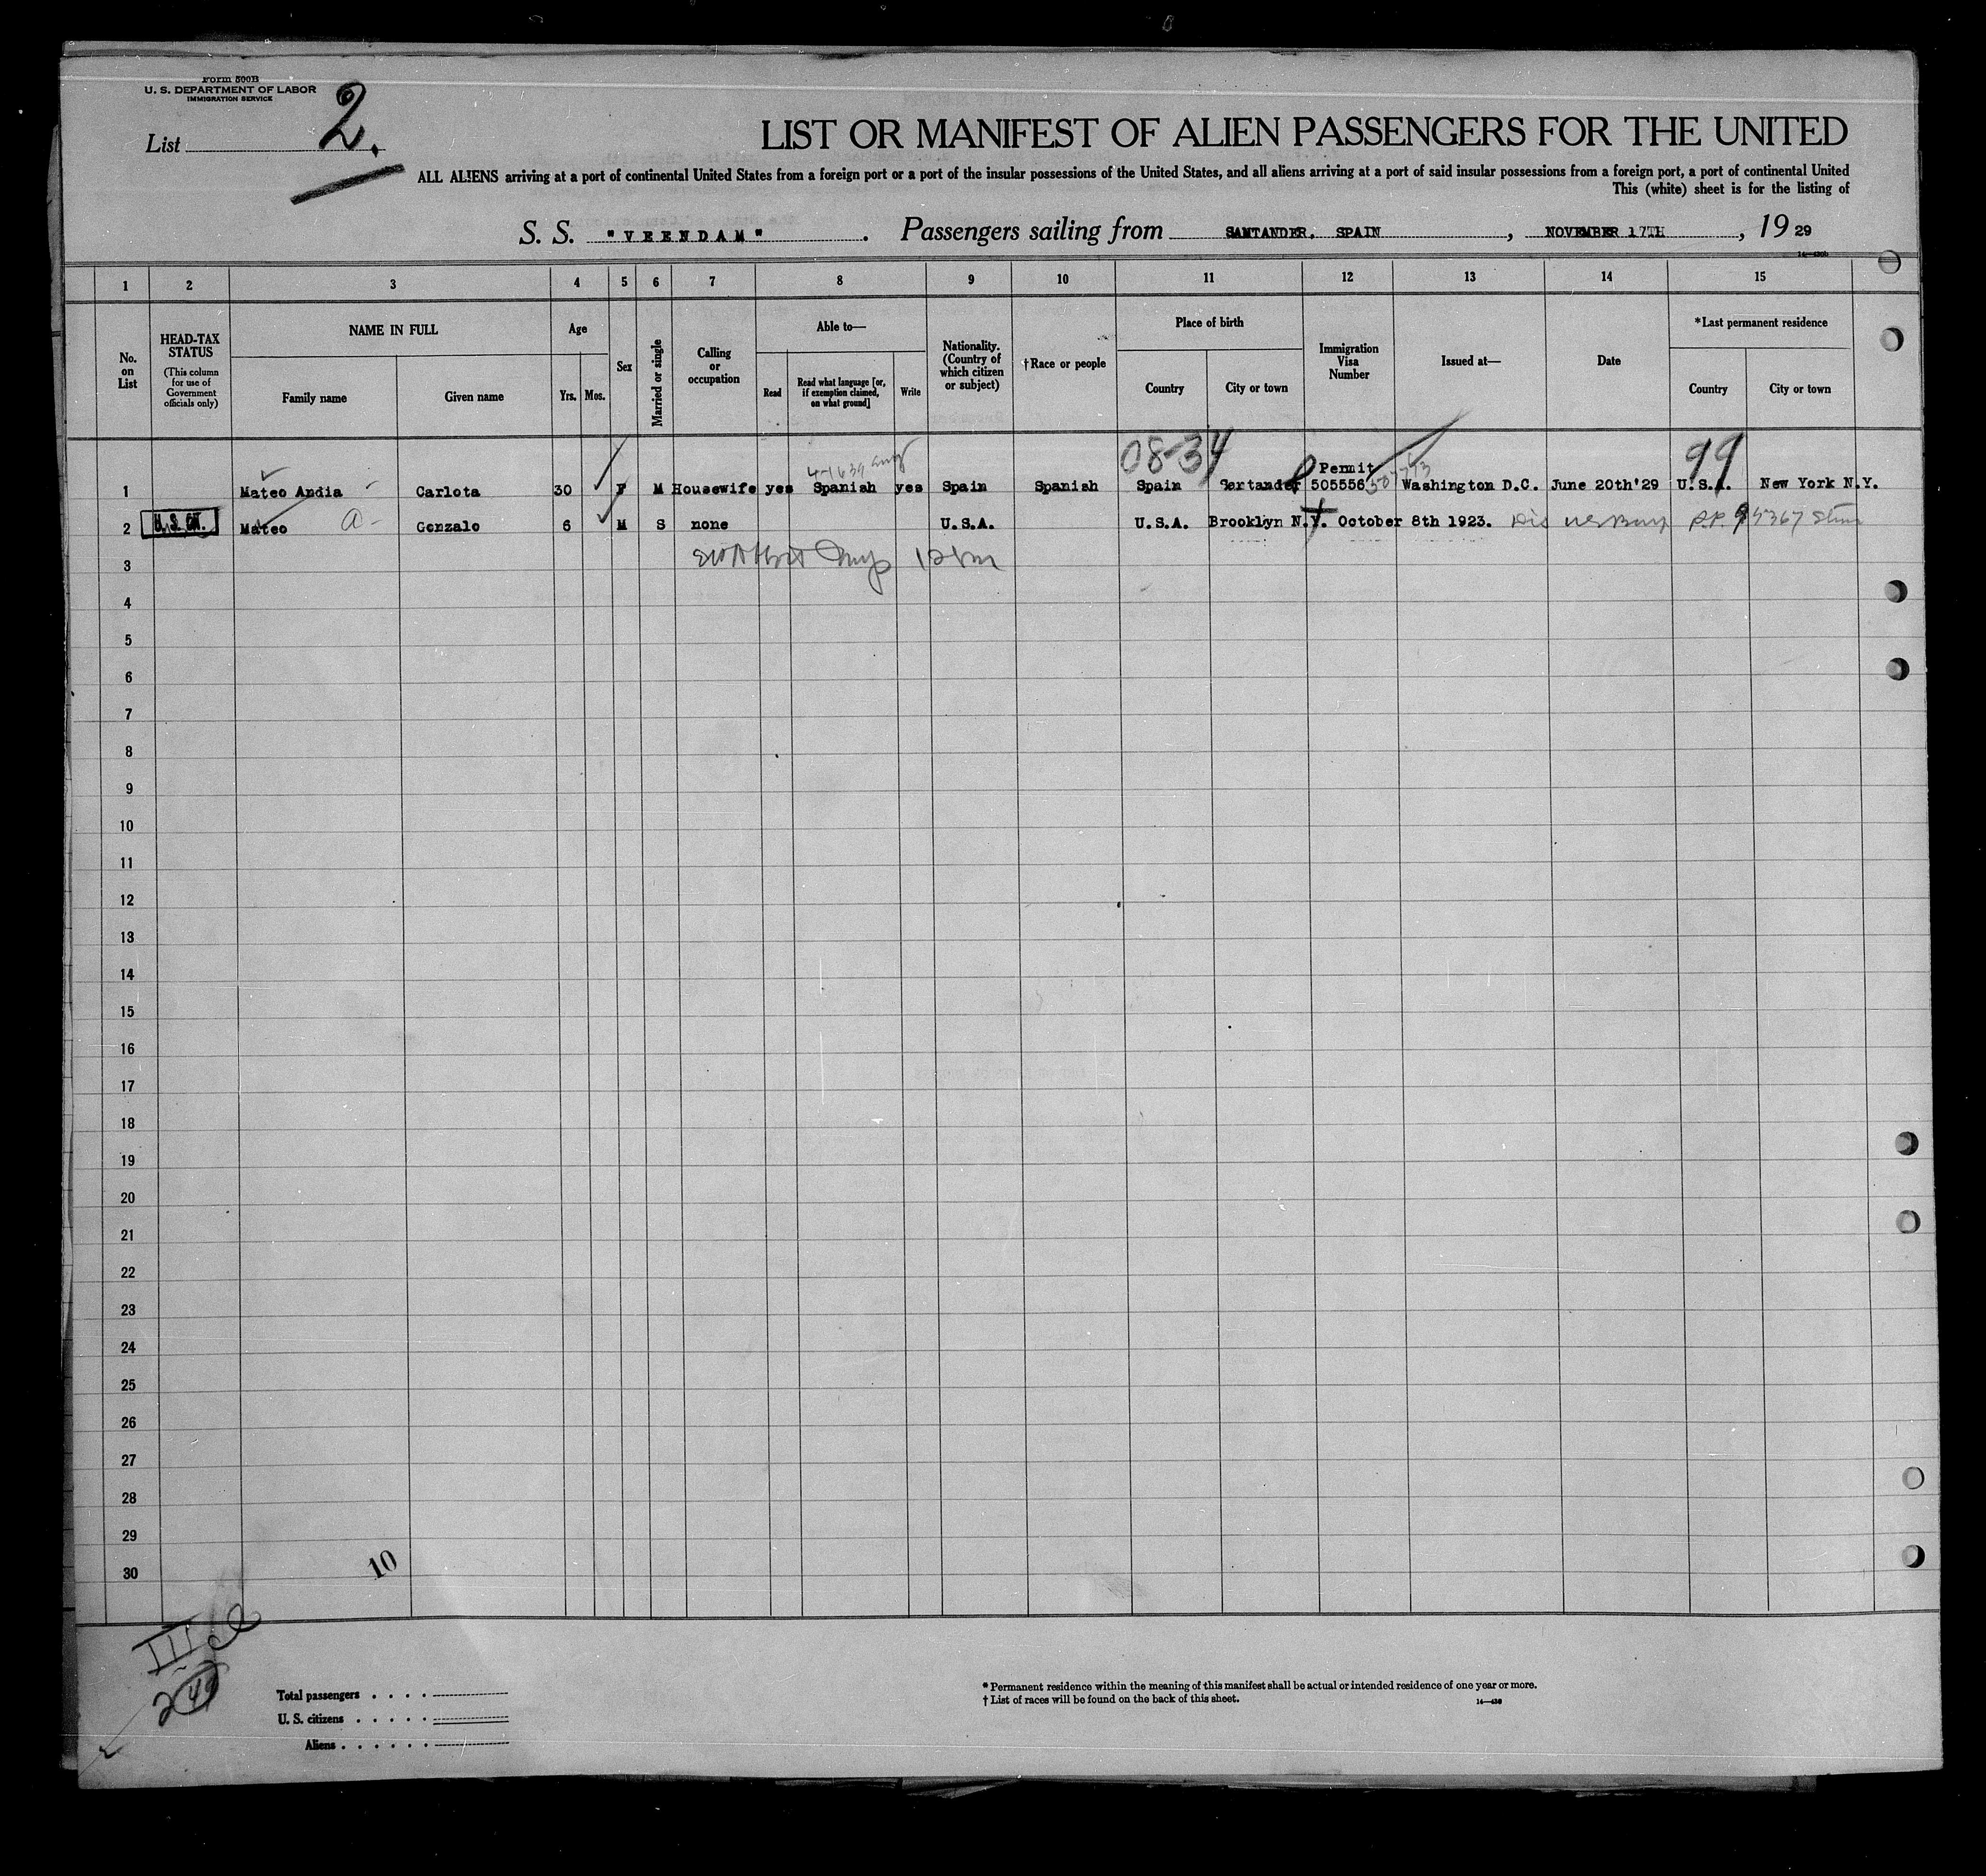 Form 500B
U. S. DEPARTMENT OF LABOR
IMMIGRATION SERVICE
List 2.
LIST OR MANIFEST OF ALIEN PASSENGERS FOR THE UNITED
ALL ALIENS arriving at a port of continental United States from a foreign port or a port of the insular possessions of the United States, and all aliens arriving at a port of said insular possessions from a foreign port, a port of continental United
This (white) sheet is for the listing of
S. S. "VEENDAM". Passengers sailing from SANTANDER, SPAIN, NOVEMBER 17TH, 19 29
1 2 3 4 5 6 7 8 9 10 11 12 13 14 15
No. on List
HEAD-TAX STATUS
(This column for use of Government officials only)
NAME IN FULL
Family name Given name
Age
Yrs. Mos.
Sex
Married or single
Calling or occupation
Able to—
Read Read what language [or, if exemption claimed, on what ground] Write
Nationality. (Country of which citizen or subject)
†Race or people
Place of birth
Country City or town
Immigration Visa Number
Issued at—
Date
*Last permanent residence
Country City or town
08-34 99
Permit
1 Mateo Andia Carlota 30 F M Housewife yes Spanish yes Spain Spanish Spain Santander 505556 Washington D.C. June 20th'29 U.S.A. New York N.Y.
2 U.S. CIT. Mateo a- Gonzalo 6 M S none U.S.A. U.S.A. Brooklyn N.Y. October 8th 1923. P.P.
3
4
5
6
7
8
9
10
11
12
13
14
15
16
17
18
19
20
21
22
23
24
25
26
27
28
29
30
10
III
2 49
Total passengers
U. S. citizens
Aliens
* Permanent residence within the meaning of this manifest shall be actual or intended residence of one year or more.
† List of races will be found on the back of this sheet.
14—430